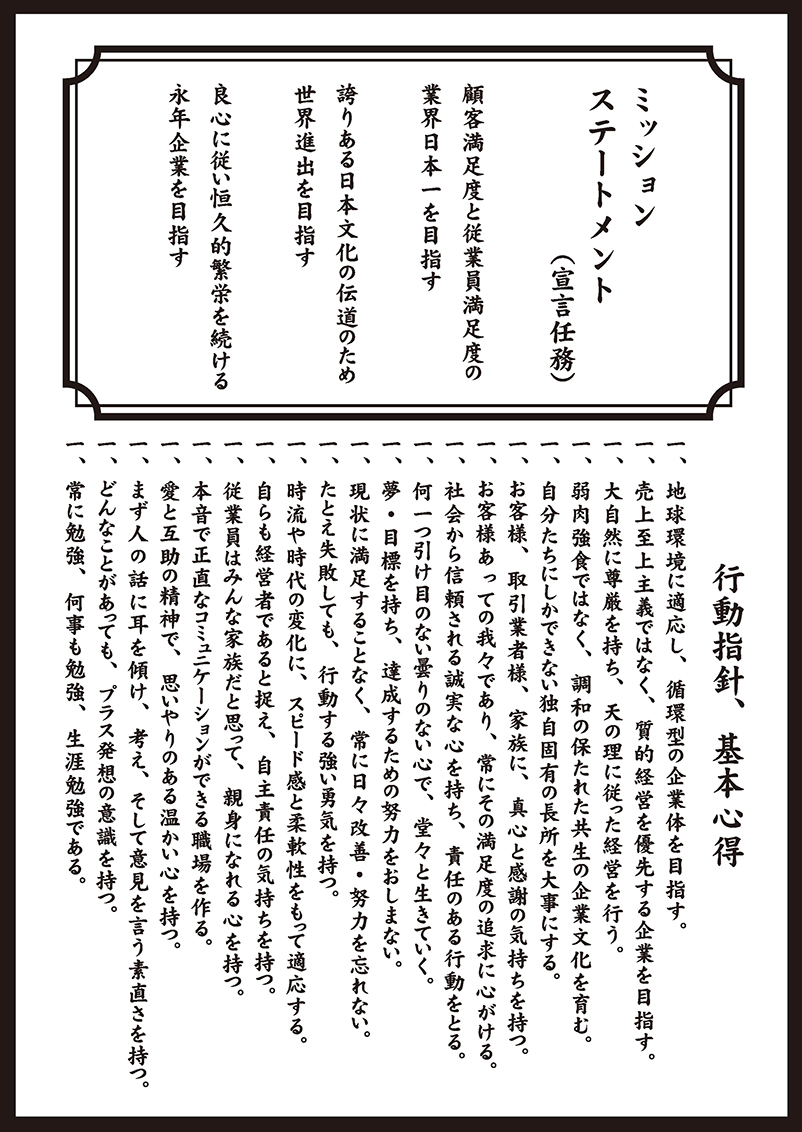 ミッション
ステートメント
（宣言任務）
顧客満足度と従業員満足度の
業界日本一を目指す
誇りある日本文化の伝道のため
世界進出を目指す
良心に従い恒久的繁栄を続ける
永年企業を目指す
行動指針、基本心得
一、地球環境に適応し、循環型の企業体を目指す。
一、売上至上主義ではなく、質的経営を優先する企業を目指す。
一、大自然に尊厳を持ち、天の理に従った経営を行う。
一、弱肉強食ではなく、調和の保たれた共生の企業文化を育む。
一、自分たちにしかできない独自固有の長所を大事にする。
一、お客様、取引業者様、家族に、真心と感謝の気持ちを持つ。
一、お客様あっての我々であり、常にその満足度の追求に心がける。
一、社会から信頼される誠実な心を持ち、責任のある行動をとる。
一、何一つ引け目のない曇りのない心で、堂々と生きていく。
一、夢・目標を持ち、達成するための努力をおしまない。
一、現状に満足することなく、常に日々改善・努力を忘れない。
一、たとえ失敗しても、行動する強い勇気を持つ。
一、時流や時代の変化に、スピード感と柔軟性をもって適応する。
一、自らも経営者であると捉え、自主責任の気持ちを持つ。
一、従業員はみんな家族だと思って、親身になれる心を持つ。
一、本音で正直なコミュニケーションができる職場を作る。
一、愛と互助の精神で、思いやりのある温かい心を持つ。
一、まず人の話に耳を傾け、考え、そして意見を言う素直さを持つ。
一、どんなことがあっても、プラス発想の意識を持つ。
一、常に勉強、何事も勉強、生涯勉強である。